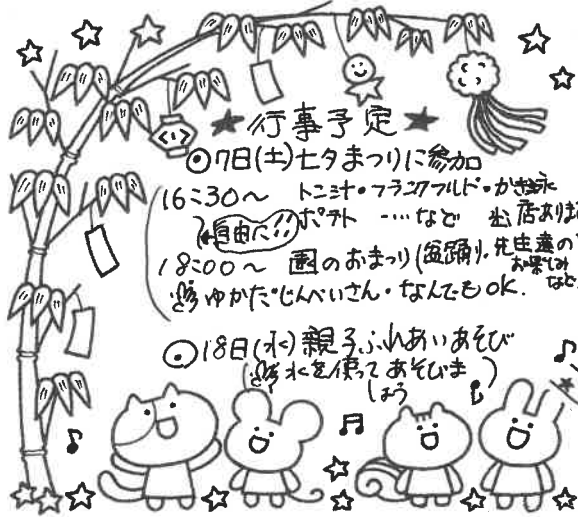 ★行事予定★
◎7日(土)七夕まつりに参加
16:30～ トン汁・フランクフルト・かき氷
ポテト …など 出店あります
自由に!!
18:00～ 園のおまつり(盆踊り、先生達の
お楽しみ
など
ゆかた・じんべいさん・なんでもOK.
◎18日(水)親子ふれあいあそび
(水を使ってあそびま
しょう)